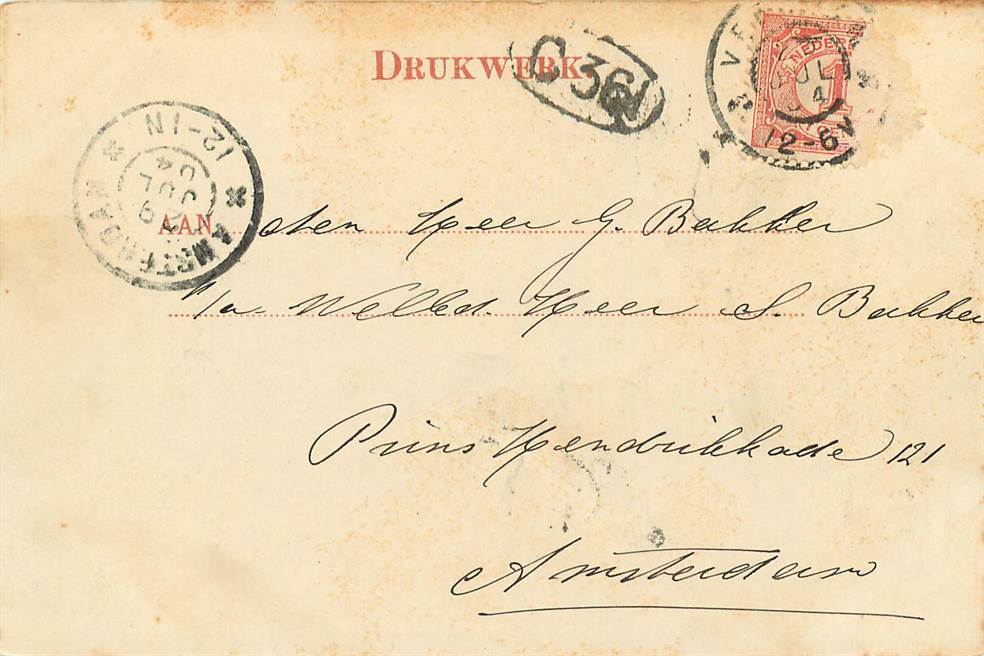 DRUKWERK.
C 36
NEDER
1
JUL
4
12-6V
AMSTERDAM
12-1N
JUL
04
AAN den Heer G. Bakker
p/a. WelEd. Heer S. Bakker
Prins Hendrikkade 121
Amsterdam